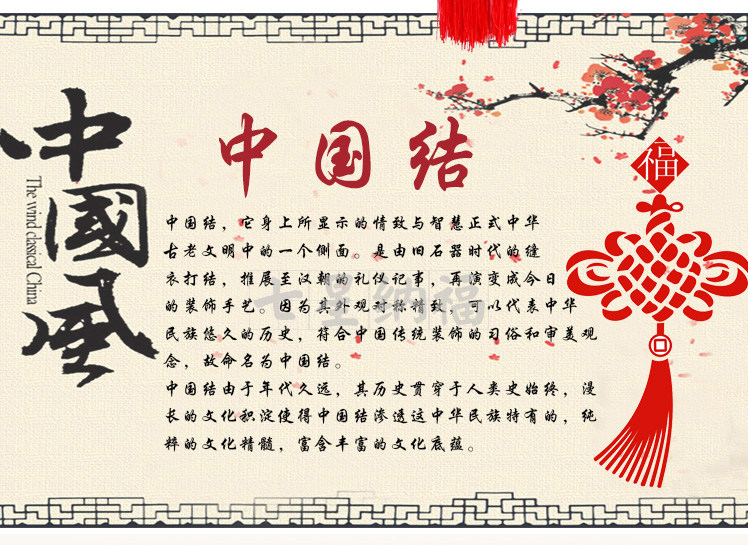 中國風
The wind classical China
中国结
福
中国结，它身上所显示的情致与智慧正式中华
古老文明中的一个侧面。是由旧石器时代的缝
衣打结，推展至汉朝的礼仪记事，再演变成今日
的装饰手艺。因为其外观对称精致，可以代表中华
民族悠久的历史，符合中国传统装饰的习俗和审美观
念，故命名为中国结。
中国结由于年代久远，其历史贯穿于人类史始终，漫
长的文化积淀使得中国结渗透这中华民族特有的，纯
粹的文化精髓，富含丰富的文化底蕴。
七星纳福